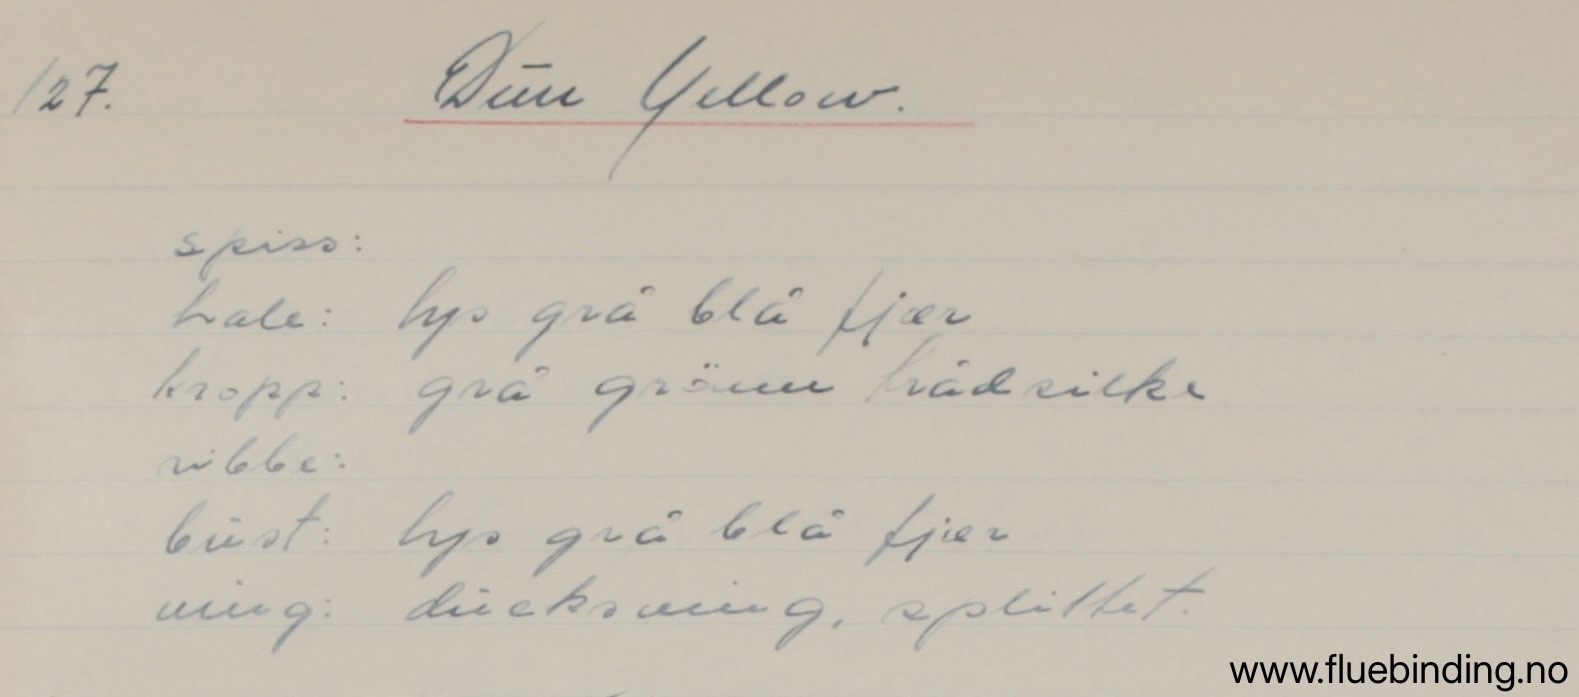 127. Dūn Yellow.
spiss:
hale: lys grå blå fjær
kropp: grå grönn trådsilke
ribbe:
būst: lys grå blå fjær
ving: dūcksving, splittet.
www.fluebinding.no